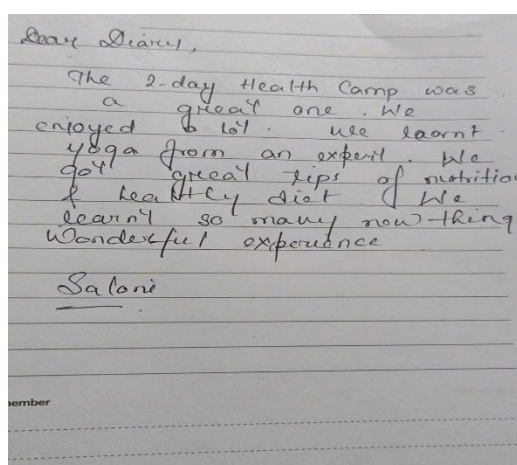 Dear Diary,
The 2-day Health Camp was
a great one. We
enjoyed a lot. We learnt
yoga from an expert. We
got great tips of nutritio
& healthy diet We
learnt so many new thing
Wonderful experience
Saloni
member